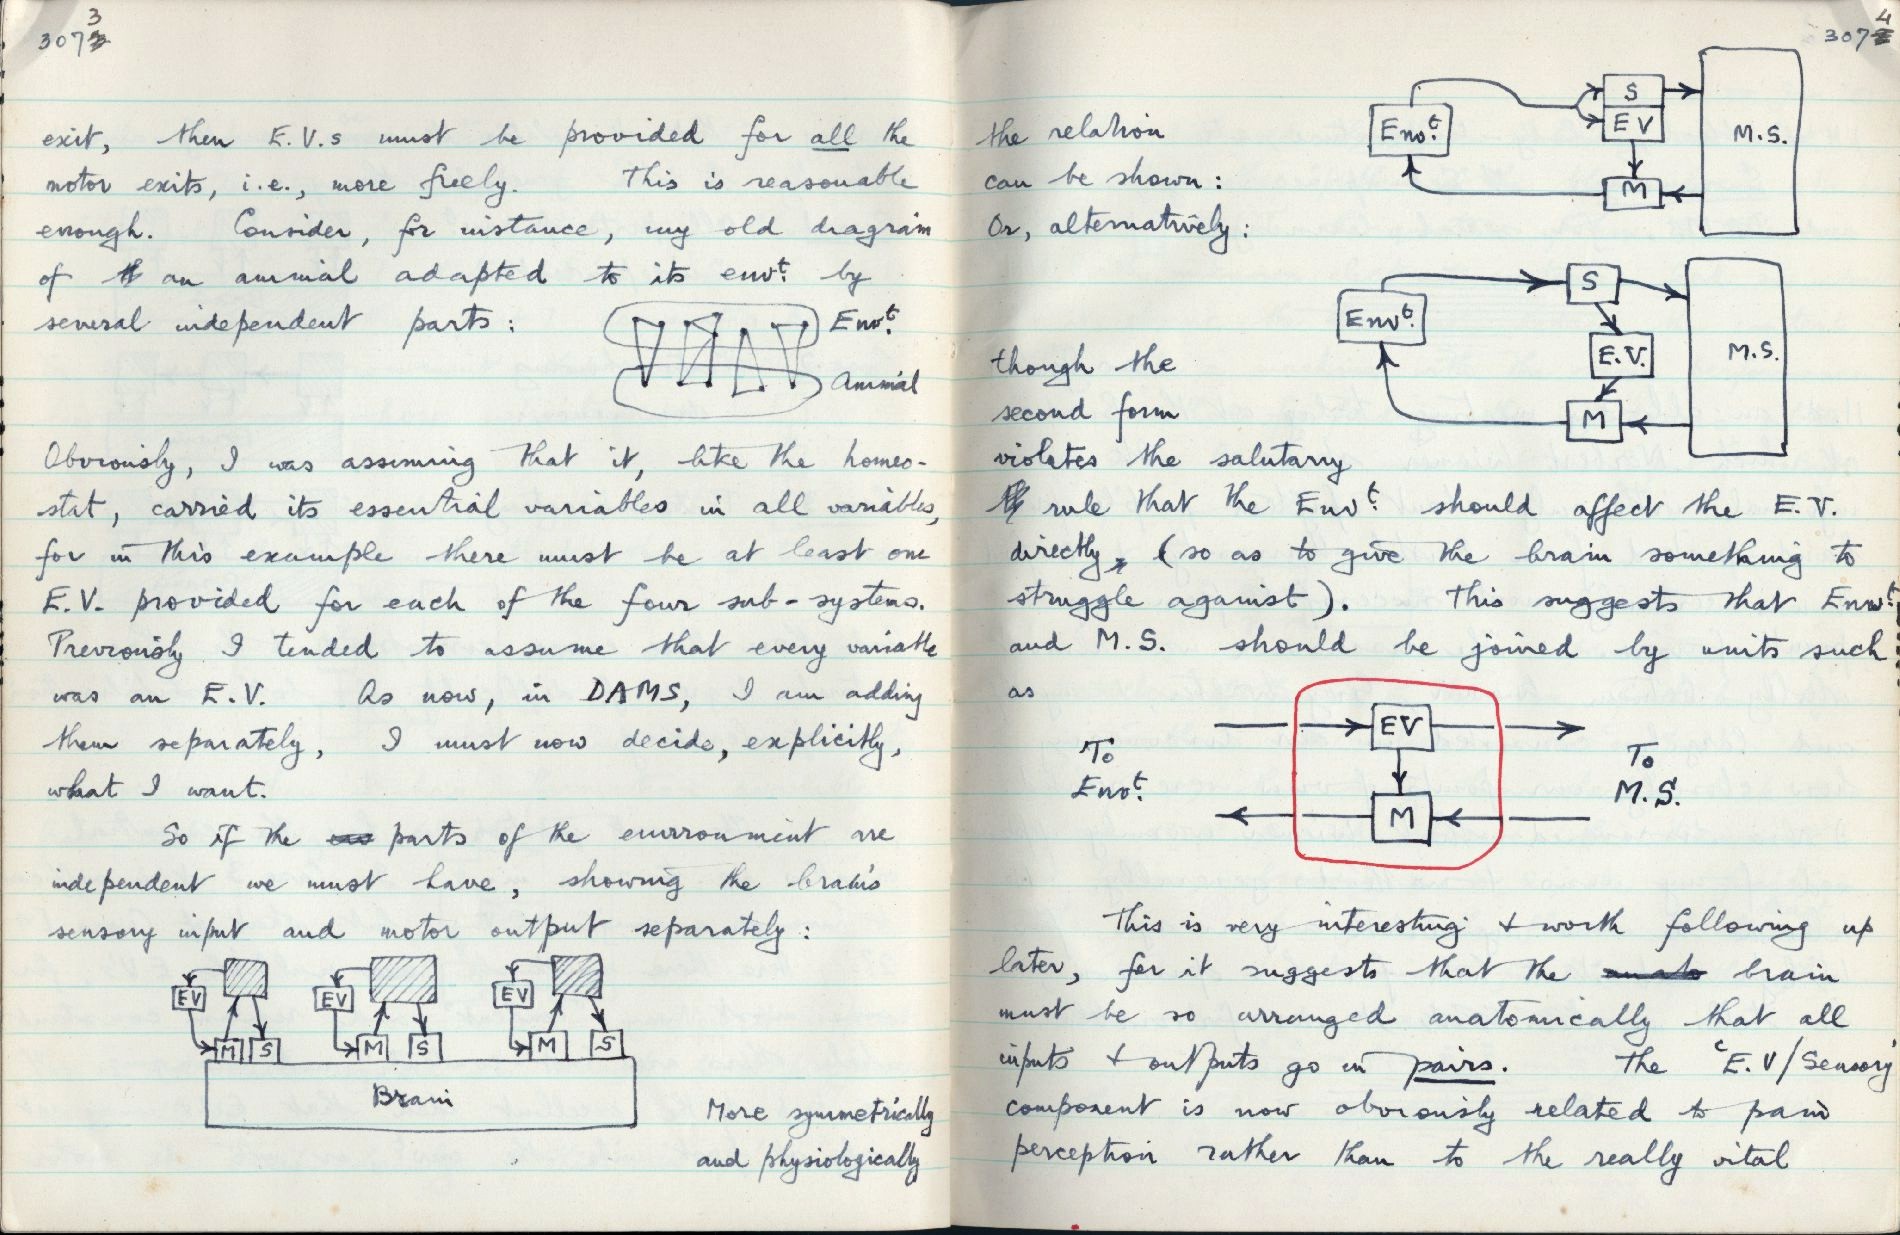 3
3073
exit, then E.V.s must be provided for all the
motor exits, i.e., more freely. This is reasonable
enough. Consider, for instance, my old diagram
of an animal adapted to its envt. by
several independent parts:
Envt.
Animal
Obviously, I was assuming that it, like the homeo-
stat, carried its essential variables in all variables,
for in this example there must be at least one
E.V. provided for each of the four sub-systems.
Previously I tended to assume that every variable
was an E.V. As now, in DAMS, I am adding
them separately, I must now decide, explicitly,
what I want.
So if the parts of the environment are
independent we must have, showing the brain's
sensory input and motor output separately:
EV EV EV
M S M S M S
Brain
More symmetrically
and physiologically
4
307
the relation
can be shown:
Or, alternatively:
Envt.
S
EV
M
M.S.
Envt.
S
E.V.
M
M.S.
though the
second form
violates the salutary
rule that the Envt. should affect the E.V.
directly, (so as to give the brain something to
struggle against). This suggests that Envt.
and M.S. should be joined by units such
as
EV
M
To
Envt.
To
M.S.
This is very interesting & worth following up
later, for it suggests that the brain
must be so arranged anatomically that all
inputs & outputs go in pairs. The 'E.V/Sensory'
component is now obviously related to pain
perception rather than to the really vital